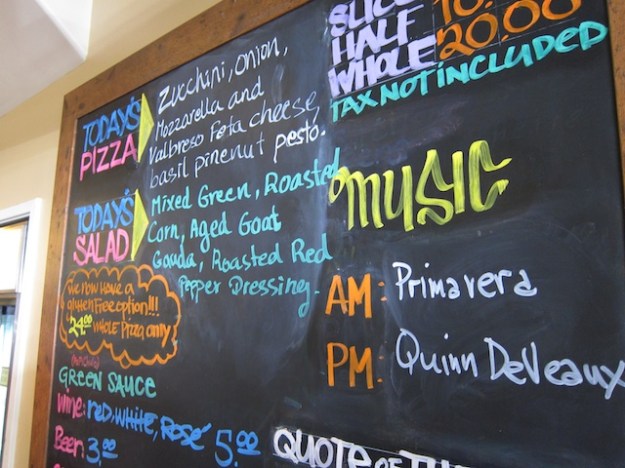 TODAY'S PIZZA
Zucchini, onion,
Mozzarella and
Valbreso Feta cheese,
basil pinenut pesto.
TODAY'S SALAD
Mixed Green, Roasted
Corn, Aged Goat
Gouda, Roasted Red
Pepper Dressing.
we now have a
gluten Free option!!!
24.00 WHOLE Pizza only
GREEN SAUCE
Wine: red, WHITE, Rosé 5.00
Beer: 3.00
SLICE
HALF 10.
WHOLE 20.00
TAX NOT INCLUDED
MUSIC
AM: Primavera
PM: Quinn DeVeaux
QUOTE OF